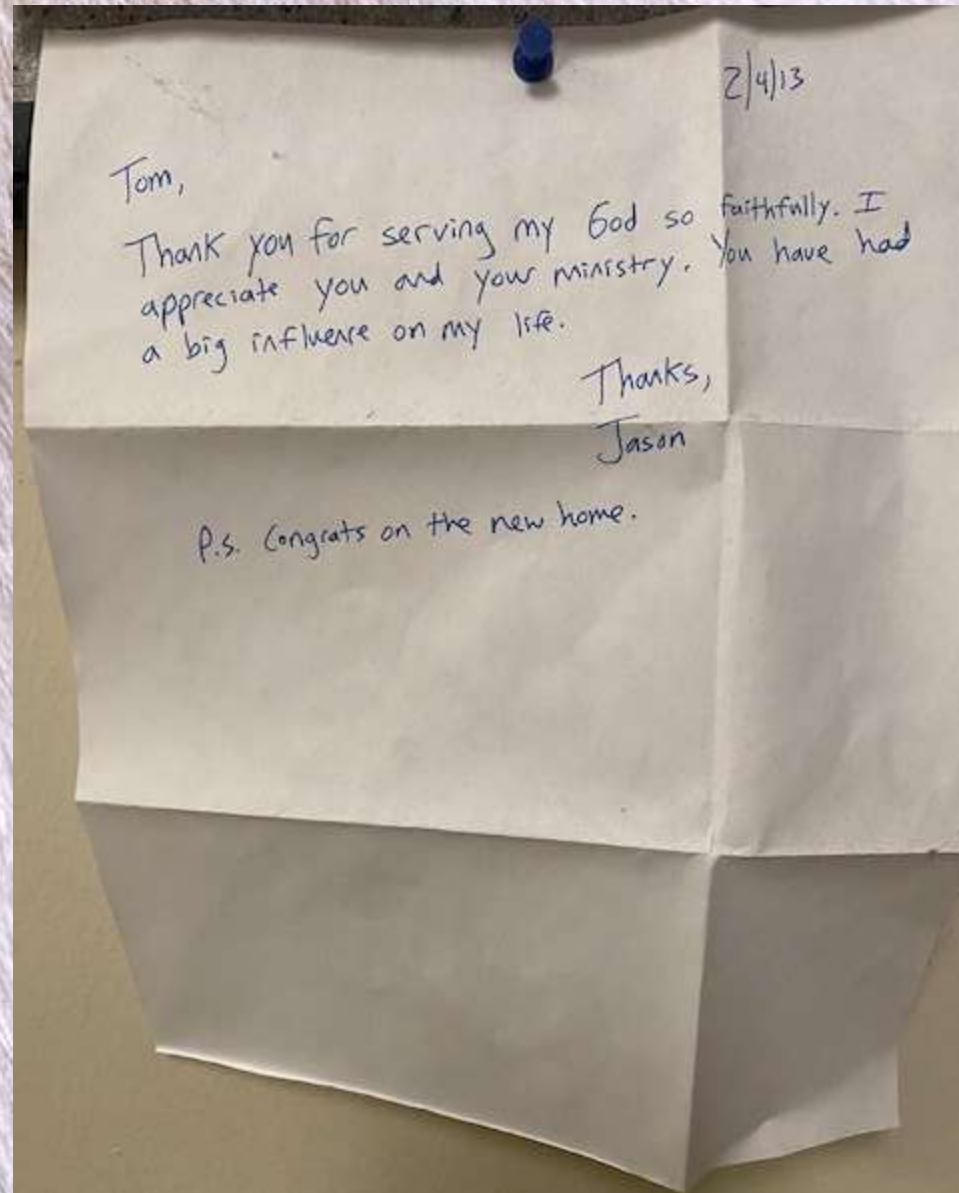 2/4/13
Tom,
Thank you for serving my God so faithfully. I
appreciate you and your ministry. You have had
a big influence on my life.
Thanks,
Jason
P.s. Congrats on the new home.